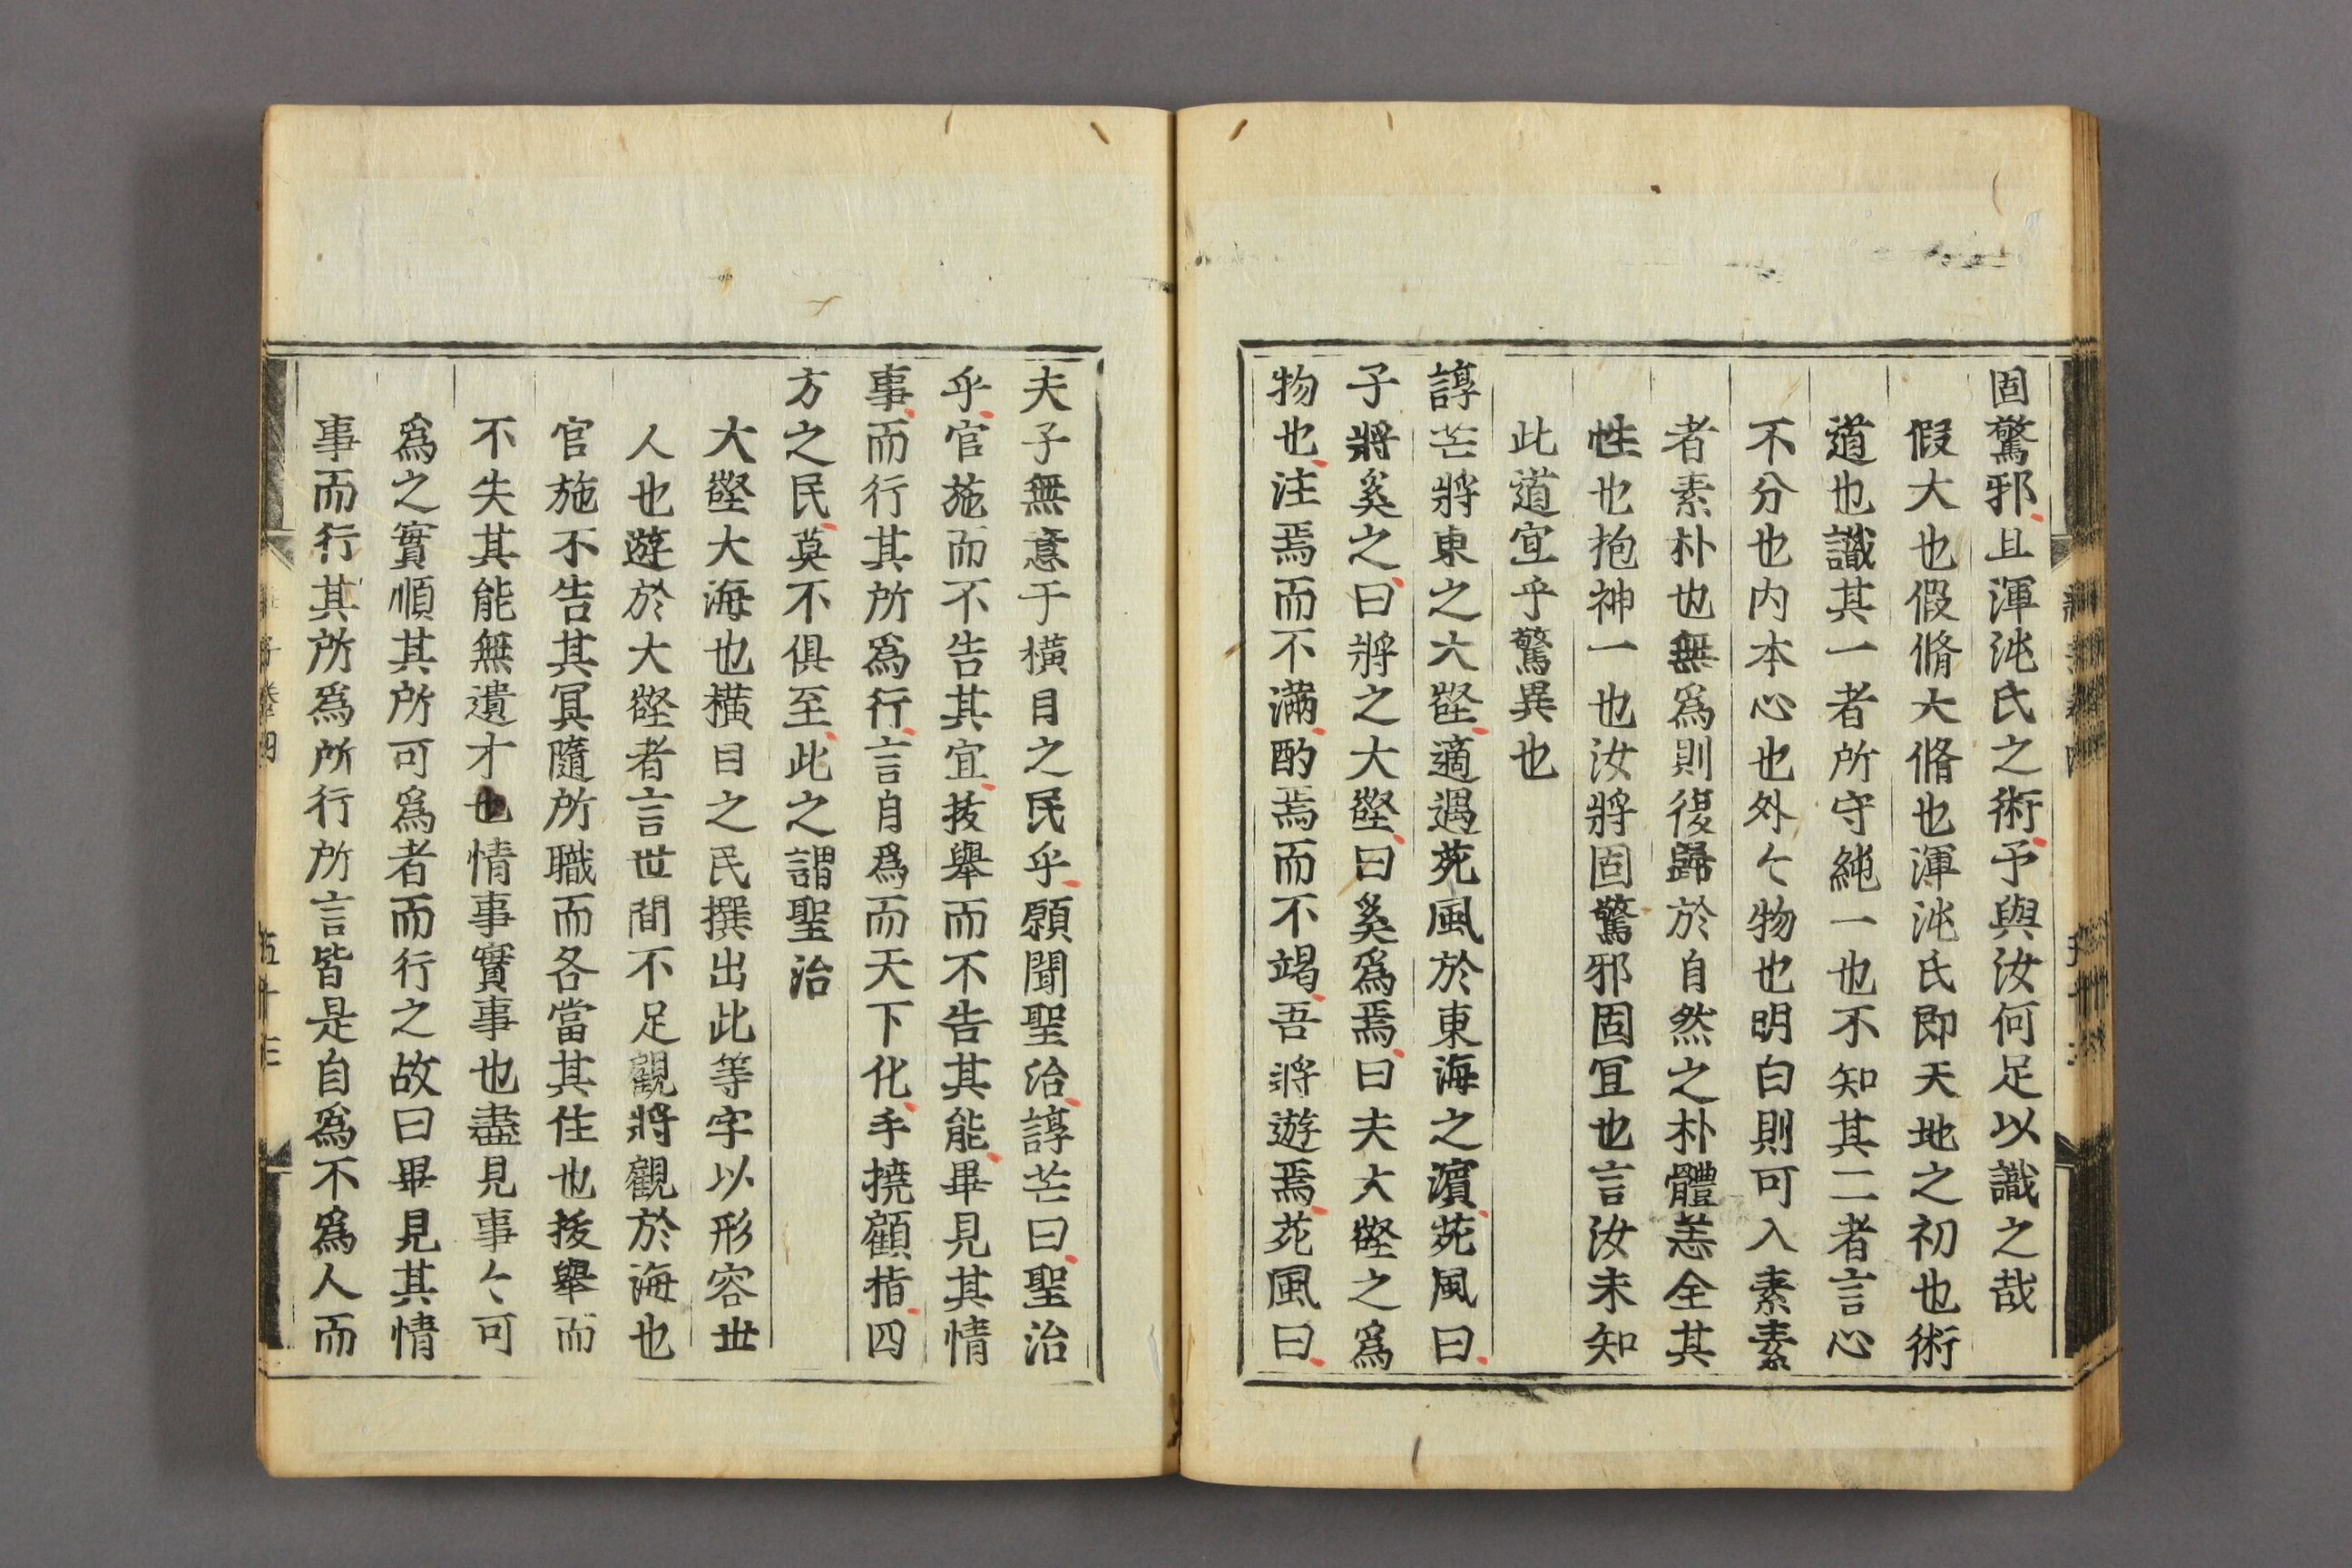 固驚邪且渾沌氏之術予與汝何足以識之哉
假大也假脩大脩也渾沌氏即天地之初也術
道也識其一者所守純一也不知其二者言心
不分也内本心也外〻物也明白則可入素素
者素朴也無爲則復歸於自然之朴體恙全其
性也抱神一也汝將固驚邪固冝也言汝未知
此道宜乎驚異也
諄芒將東之大壑適遇苑風於東海之濵苑風曰
子將奚之曰將之大壑曰奚爲焉曰夫大壑之爲
物也注焉而不滿酌焉而不竭吾將遊焉苑風曰
夫子無意于橫目之民乎願聞聖治諄芒曰聖治
乎官施而不告其宜拔舉而不告其能畢見其情
事而行其所爲行言自爲而天下化手撓顧指四
方之民莫不俱至此之謂聖治
大壑大海也橫目之民撰出此等字以形容世
人也遊於大壑者言世間不足觀將觀於海也
官施不告其冝隨所職而各當其任也拔舉而
不失其能無遺才也情事實事也盡見事〻可
爲之實順其所可爲者而行之故曰畢見其情
事而行其所爲所行所言皆是自爲不爲人而